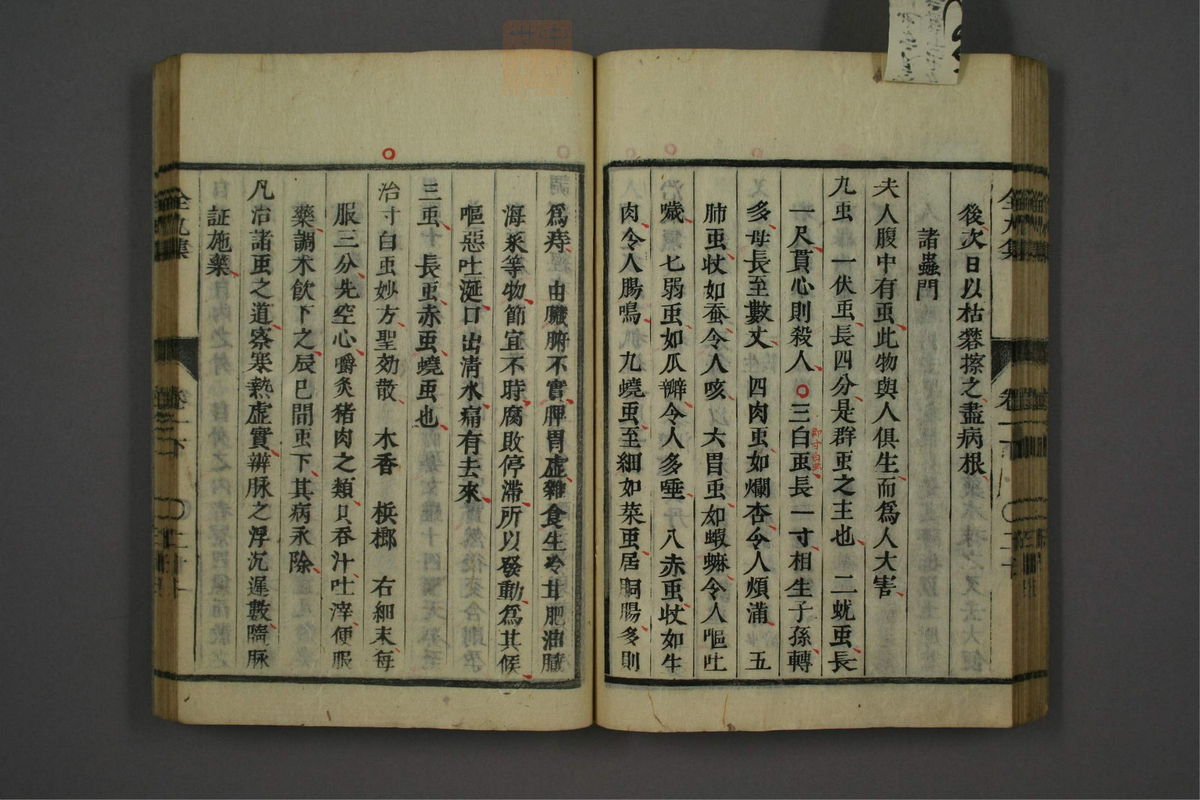 後次日以枯礬擦之盡病根
諸蟲門
夫人腹中有䖝此物與人俱生而為人大害
九䖝 一伏䖝長四分是群䖝之主也 二蚘䖝長
一尺貫心則殺人 三白䖝長一寸相生子孫轉
即寸白虫
多母長至數丈 四肉䖝如爛杏令人煩滿 五
肺䖝蚊如蚕令人咳 六胃䖝如蝦蟆令人嘔吐
噦 七弱䖝如瓜瓣令人多唾 八赤䖝蚊如生
肉令人腸鳴 九蟯䖝至細如菜䖝居胴腸多則
為痔 由臟腑不實脾胃虛雜食生冷甘肥油膩
海菜等物節宜不時腐敗停滯所以發動為其候
嘔惡吐涎口出淸水痛有去來
三䖝 長䖝赤䖝蟯䖝也
治寸白䖝妙方聖効散 木香 梹榔 右細末每
服三分先空心嚼炙猪肉之類只吞汁吐滓便服
藥調木飲下之辰巳間䖝下其病永除
凡治諸䖝之道察寒熱虛實辨脉之浮沉遲數隨脉
証施藥
全九集
卷一下
全九集
卷一下